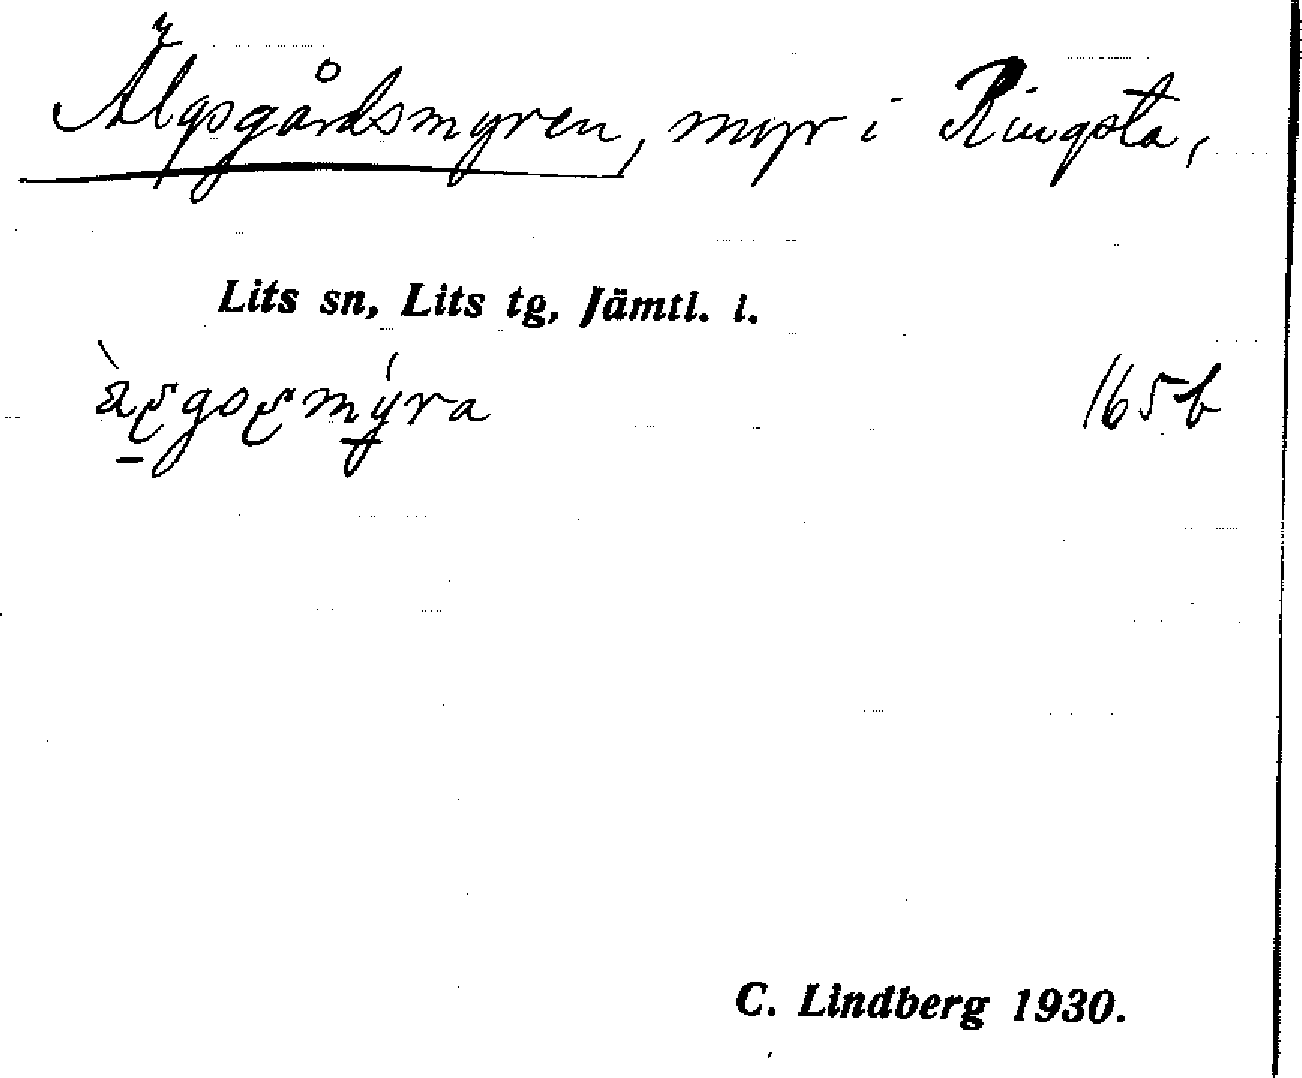 Älgsgårdsmyren, myr i Ringsta,
Lits sn, Lits tg, Jämtl. l.
165 b
C. Lindberg 1930.